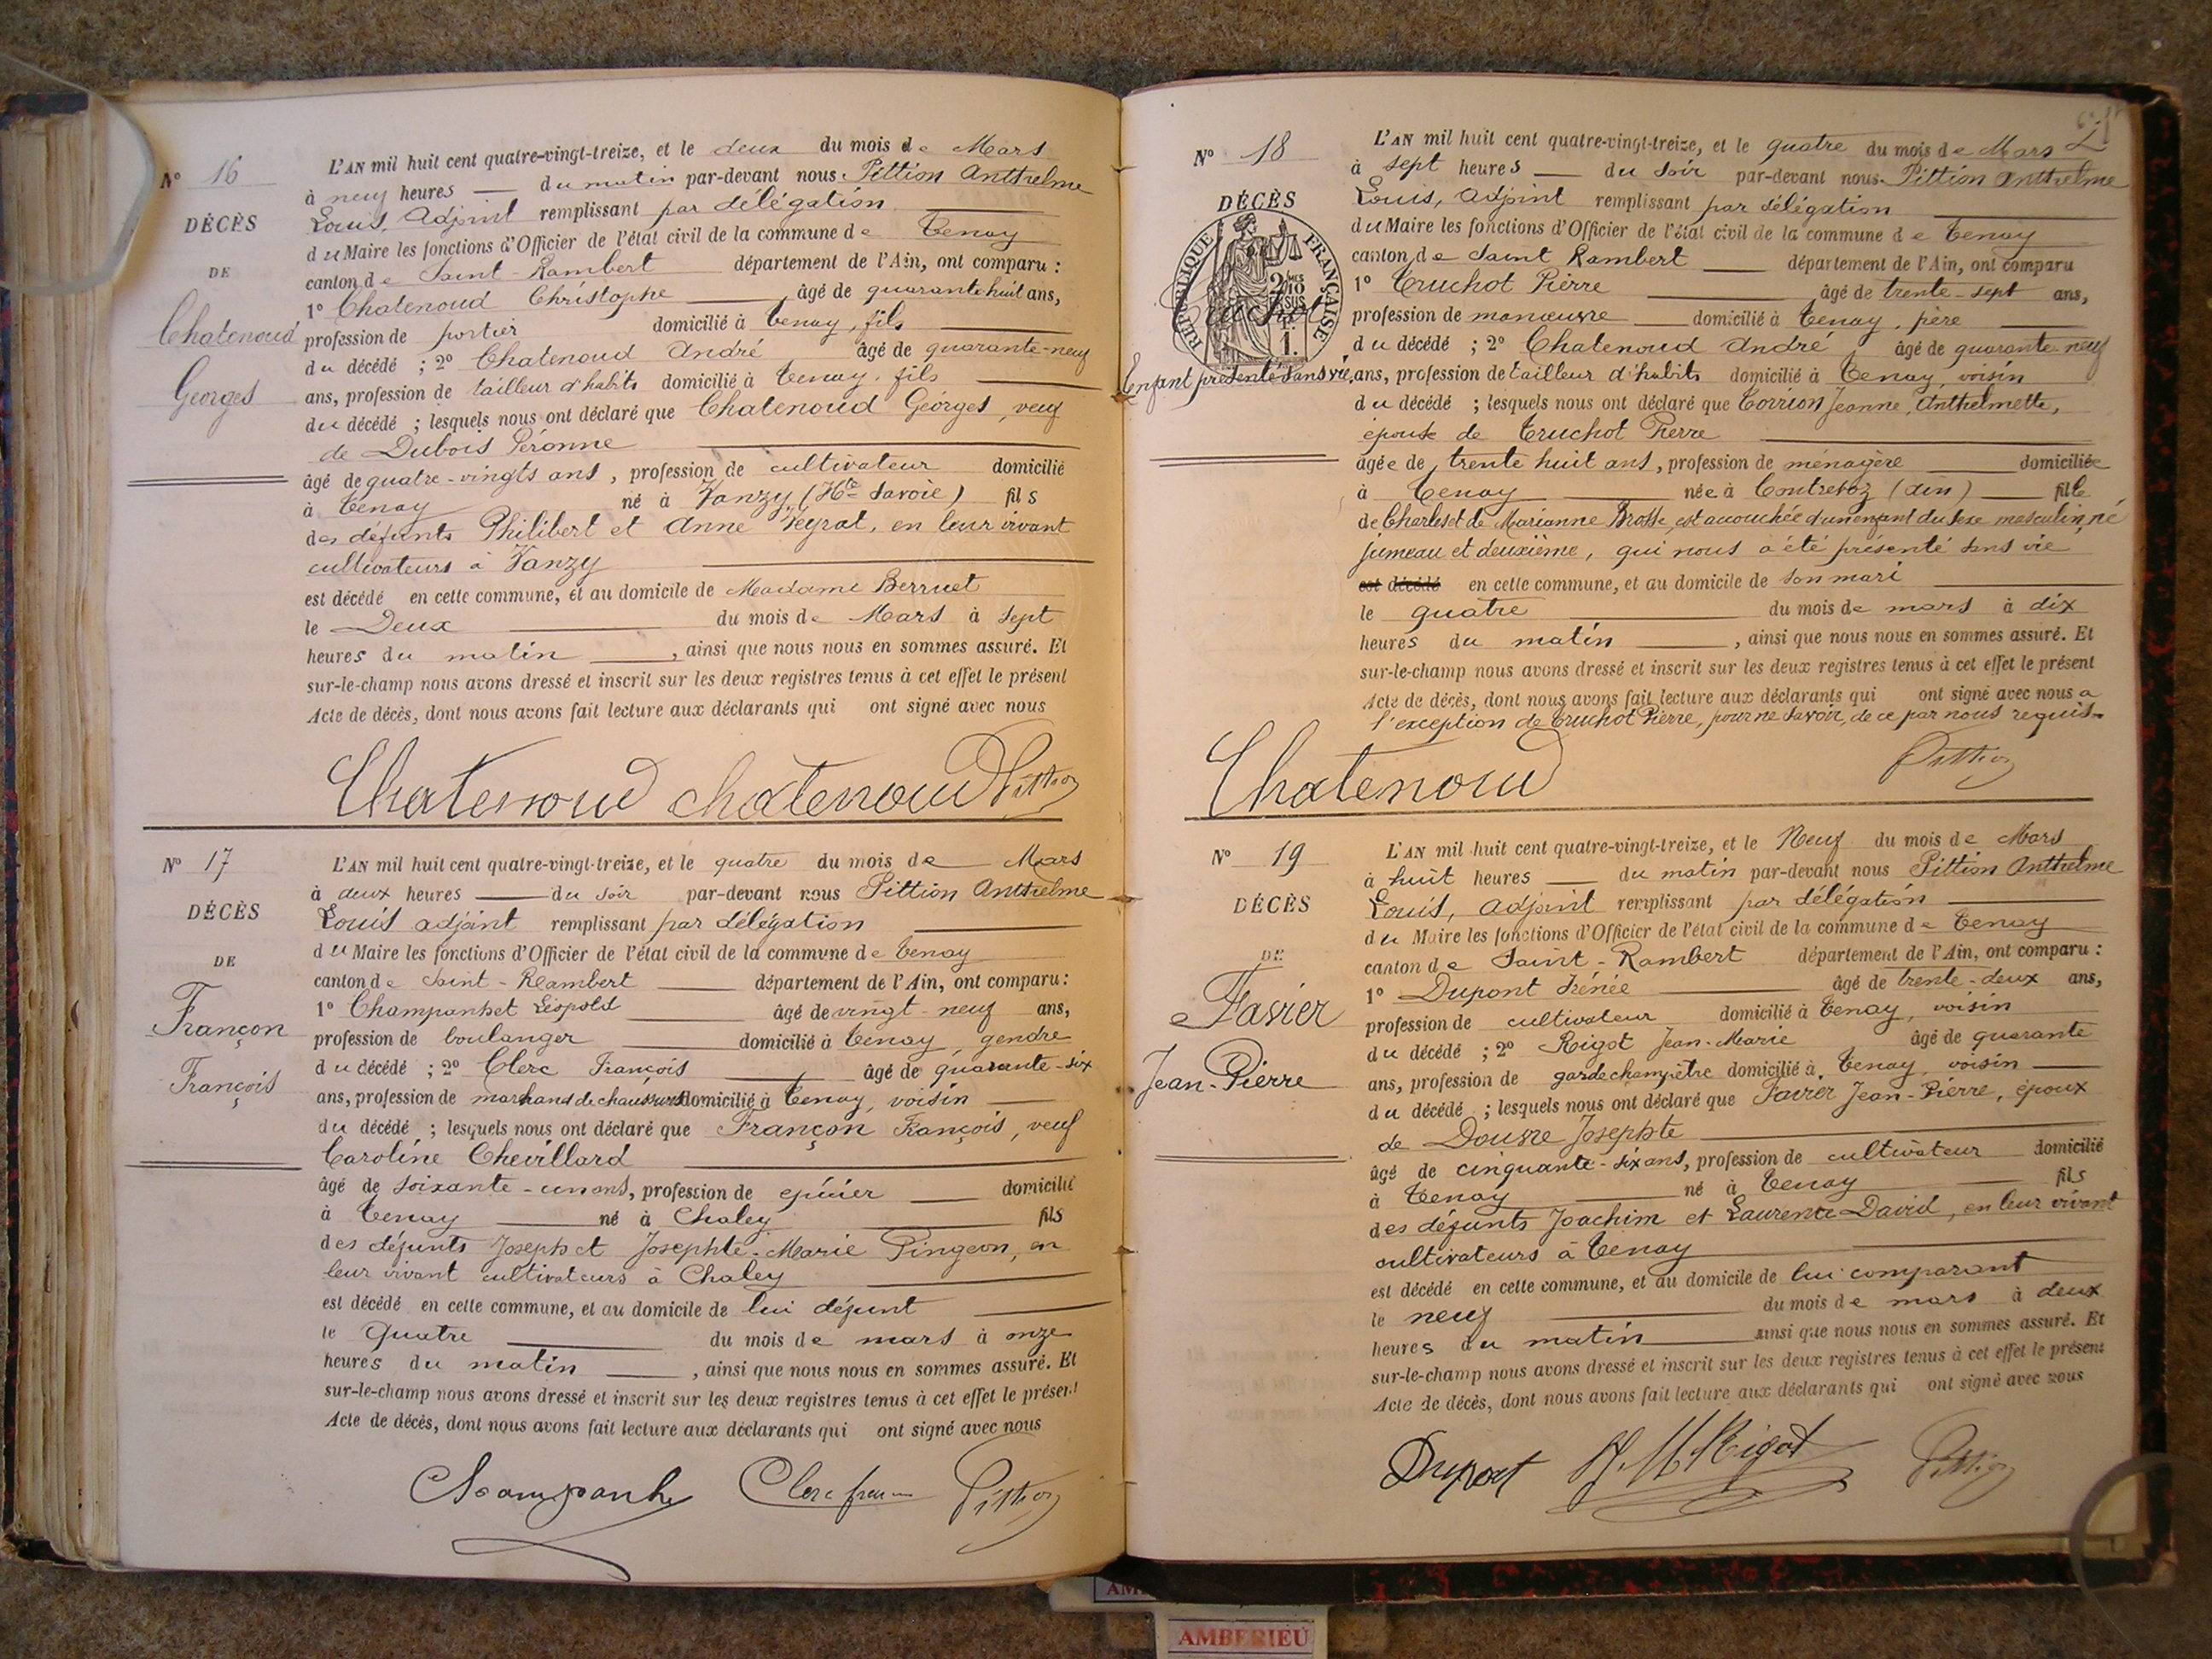 N° 16
DÉCÈS
DE
Chatenoud
Georges
L'AN mil huit cent quatre-vingt-treize, et le deux du mois de Mars
à neuf heures — du matin par-devant nous Pittion Anthelme
Louis, Adjoint remplissant par délégation
du Maire les fonctions d'Officier de l'état civil de la commune de Tenay
canton de Saint-Rambert département de l'Ain, ont comparu :
1° Chatenoud Christophe âgé de quarante huit ans,
profession de portier domicilié à Tenay, fils
du décédé ; 2° Chatenoud André âgé de quarante-neuf
ans, profession de tailleur d'habits domicilié à Tenay, fils
du décédé ; lesquels nous ont déclaré que Chatenoud Georges, veuf
de Dubois Péronne
âgé de quatre-vingts ans, profession de cultivateur domicilié
à Tenay né à Vanzy (Hte Savoie) fils
des défunts Philibert et Anne Peyrat, en leur vivant
cultivateurs à Vanzy
est décédé en cette commune, et au domicile de Madame Berruet
le Deux du mois de Mars à sept
heures du matin, ainsi que nous nous en sommes assuré. Et
sur-le-champ nous avons dressé et inscrit sur les deux registres tenus à cet effet le présent
Acte de décès, dont nous avons fait lecture aux déclarants qui ont signé avec nous
Chatenoud chatenoud Pittion
N° 17
DÉCÈS
DE
Françon
François
L'AN mil huit cent quatre-vingt-treize, et le quatre du mois de Mars
à deux heures — du soir par-devant nous Pittion Anthelme
Louis adjoint remplissant par délégation
du Maire les fonctions d'Officier de l'état civil de la commune de Tenay
canton de Saint-Rambert département de l'Ain, ont comparu :
1° Champanhet Léopold âgé de vingt-neuf ans,
profession de boulanger domicilié à Tenay, gendre
du décédé ; 2° Clerc François âgé de quarante-six
ans, profession de marchand de chaussures domicilié à Tenay, voisin
du décédé ; lesquels nous ont déclaré que Françon François, veuf
Caroline Chevillard
âgé de soixante-un ans, profession de épicier domicilié
à Tenay né à Chaley fils
des défunts Joseph et Josephte-Marie Pingeon, en
leur vivant cultivateurs à Chaley
est décédé en cette commune, et au domicile de lui défunt
le Quatre du mois de mars à onze
heures du matin, ainsi que nous nous en sommes assuré. Et
sur-le-champ nous avons dressé et inscrit sur les deux registres tenus à cet effet le présent
Acte de décès, dont nous avons fait lecture aux déclarants qui ont signé avec nous
Champanhe Clerc fran Pittion
N° 18
DÉCÈS
RÉPUBLIQUE FRANÇAISE
Truchot
Enfant présenté sans vie,
L'AN mil huit cent quatre-vingt-treize, et le quatre du mois de Mars
à sept heures — du soir par-devant nous Pittion Anthelme
Louis, Adjoint remplissant par délégation
du Maire les fonctions d'Officier de l'état civil de la commune de Tenay
canton de Saint Rambert département de l'Ain, ont comparu
1° Truchot Pierre âgé de trente-sept ans,
profession de manœuvre domicilié à Tenay, père
du décédé ; 2° Chatenoud André âgé de quarante-neuf
ans, profession de tailleur d'habits domicilié à Tenay, voisin
du décédé ; lesquels nous ont déclaré que Torrion Jeanne, Anthelmette,
épouse de Truchot Pierre
âgée de trente huit ans, profession de ménagère domiciliée
à Tenay née à Contrevoz (Ain) fille
de Charles et de Marianne Brosse, est accouchée d'un enfant du sexe masculin, né
jumeau et deuxième, qui nous a été présenté sans vie
est décédé en cette commune, et au domicile de son mari
le quatre du mois de mars à dix
heures du matin, ainsi que nous nous en sommes assuré. Et
sur-le-champ nous avons dressé et inscrit sur les deux registres tenus à cet effet le présent
Acte de décès, dont nous avons fait lecture aux déclarants qui ont signé avec nous a
l'exception de Truchot Pierre, pour ne savoir, de ce par nous requis.
Chatenoud Pittion
N° 19
DÉCÈS
DE
Favier
Jean-Pierre
L'AN mil huit cent quatre-vingt-treize, et le Neuf du mois de Mars
à huit heures — du matin par-devant nous Pittion Anthelme
Louis, adjoint remplissant par délégation
du Maire les fonctions d'Officier de l'état civil de la commune de Tenay
canton de Saint-Rambert département de l'Ain, ont comparu :
1° Dupont Irénée âgé de trente-deux ans,
profession de cultivateur domicilié à Tenay, voisin
du décédé ; 2° Rigot Jean-Marie âgé de quarante
ans, profession de garde champêtre domicilié à Tenay, voisin
du décédé ; lesquels nous ont déclaré que Favier Jean-Pierre, époux
de Douvre Josephte
âgé de cinquante-six ans, profession de cultivateur domicilié
à Tenay né à Tenay fils
des défunts Joachim et Laurence David, en leur vivant
cultivateurs à Tenay
est décédé en cette commune, et au domicile de lui comparant
le neuf du mois de mars à deux
heures du matin ainsi que nous nous en sommes assuré. Et
sur-le-champ nous avons dressé et inscrit sur les deux registres tenus à cet effet le présent
Acte de décès, dont nous avons fait lecture aux déclarants qui ont signé avec nous
Dupont J. M Rigot Pittion
AMBERIEU